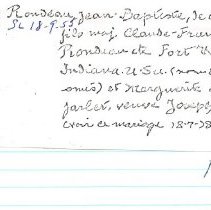 Rondeau, Jean-Baptiste, de
St 18-9-55 fils maj. Claude-Fran
Rondeau de Fort W
Indiana. U.S.A. (nom
omis) et Marguerite
Jarlet, veuve Joseph
(voir ce mariage 18-7-38